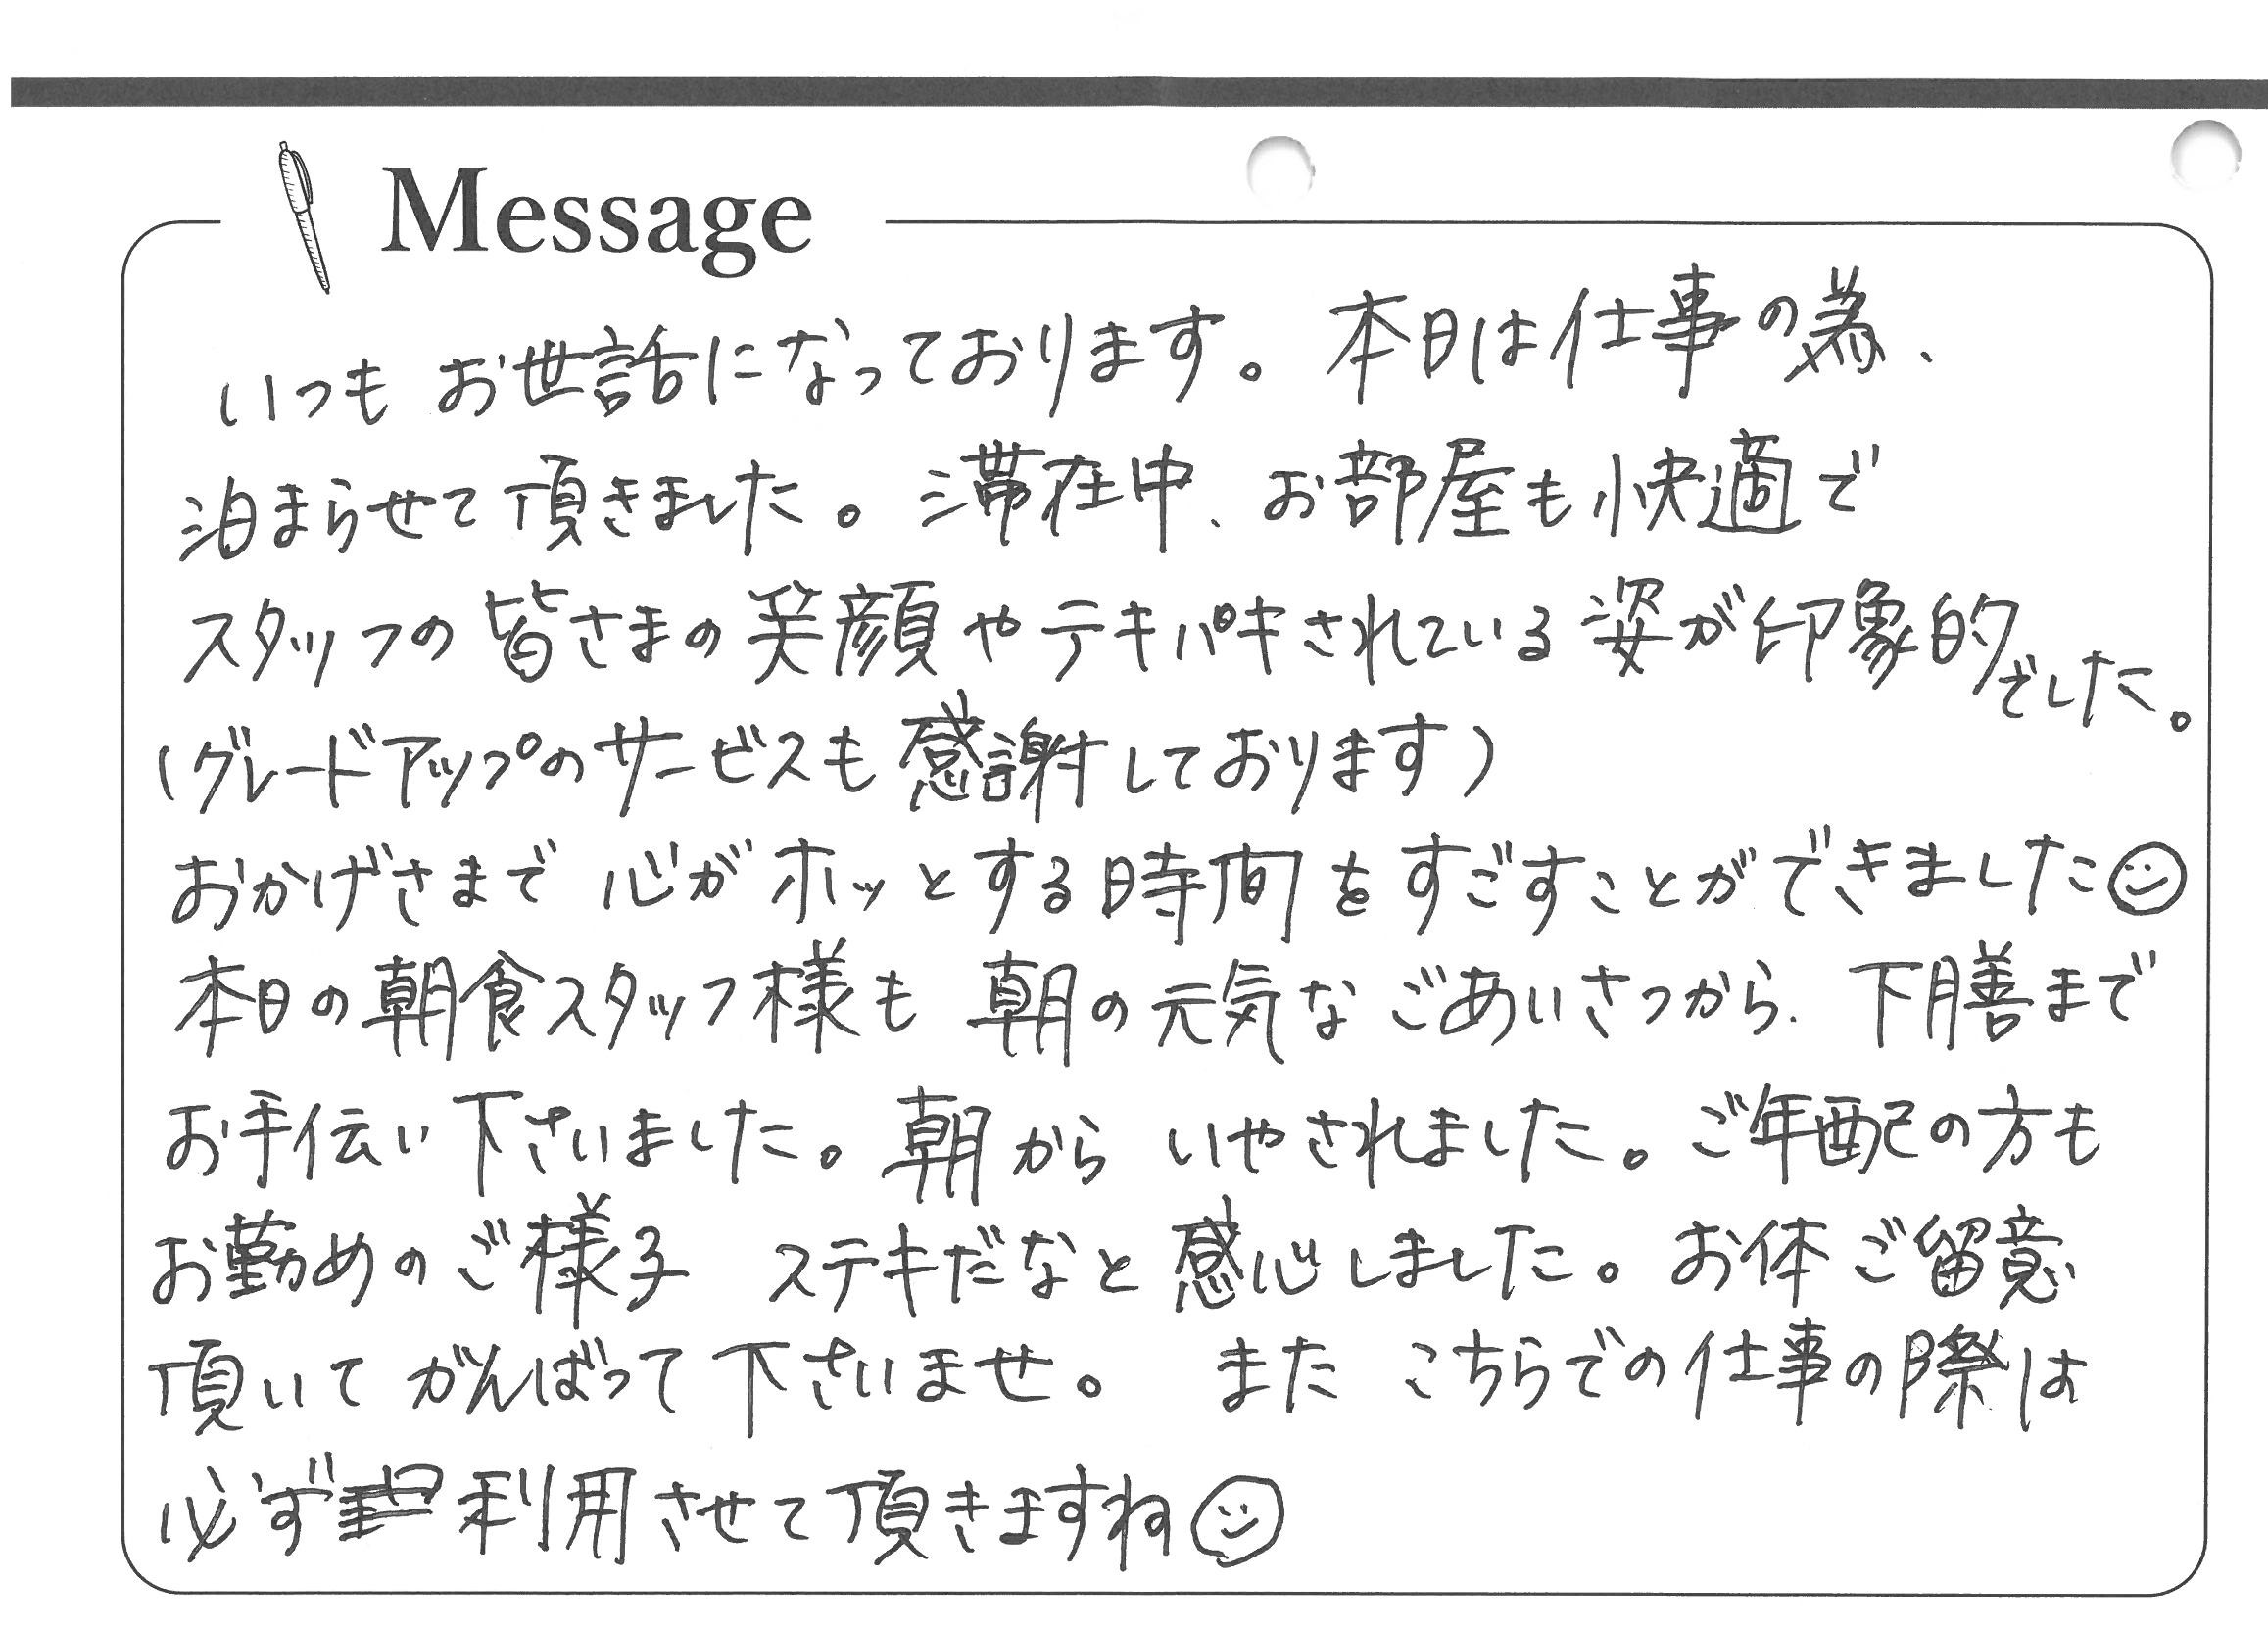 Message
いつもお世話になっております。本日は仕事の為、
泊まらせて頂きました。滞在中、お部屋も快適で
スタッフの皆さまの笑顔やテキパキされている姿が印象的でした。
(グレードアップのサービスも感謝しております)
おかげさまで心がホッとする時間をすごすことができました☺
本日の朝食スタッフ様も朝の元気なごあいさつから、下膳まで
お手伝い下さいました。朝からいやされました。ご年配の方も
お勤めのご様子 ステキだなと感心しました。お体ご留意
頂いてがんばって下さいませ。 また こちらでの仕事の際は
必ず利用させて頂きますね☺